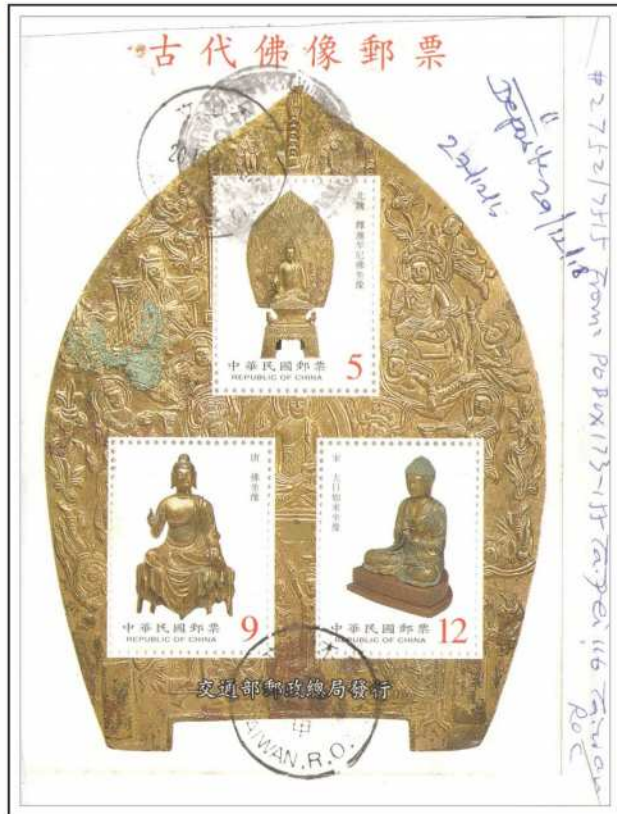 古代佛像郵票
北魏 釋迦牟尼佛坐像
中華民國郵票
REPUBLIC OF CHINA
5
唐 佛坐像
中華民國郵票
REPUBLIC OF CHINA
9
宋 大日如來坐像
中華民國郵票
REPUBLIC OF CHINA
12
交通部郵政總局發行
TAIWAN.R.O.
29/12/18
from PO Box 173-155 Taipei 116 Taiwan
ROC